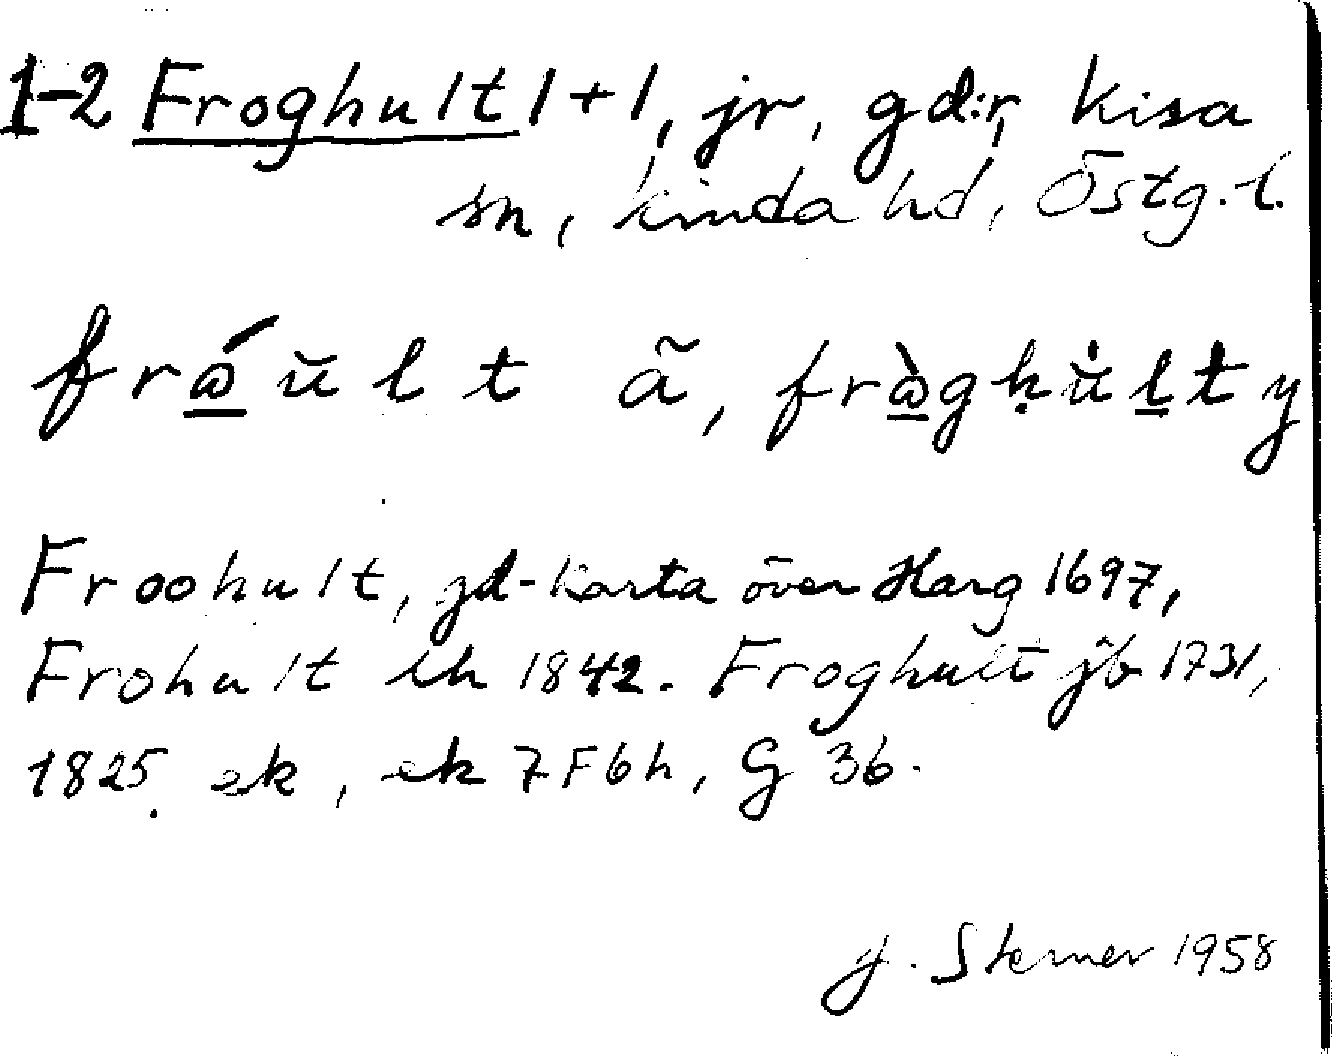 1-2 Froghult 1+1, jr, gd:r, Kisa
sn, Kinda hd, Östg. l.
frώ̲ŭlt ã, frὼ̲gḥu̇̆l̲ty
Froohult, gd-karta över Harg 1697,
Frohult lh 1842. Froghult jb 1731,
1825, ek, ek 7F6h, G 36.
J. Sterner 1958